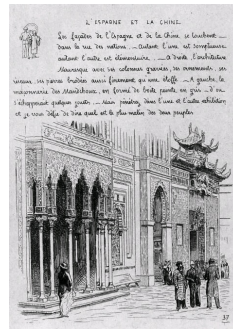 L'ESPAGNE ET LA CHINE.
Les façades de l'Espagne et de la Chine se touchent —
dans la rue des nations. — Autant l'une est somptueuse
autant l'autre est élémentaire. — A droite, l'architecture
Mauresque avec ses colonnes graciles, ses ornements, ses
ses pierres brodées aussi finement qu'une étoffe. — A gauche, la
maçonnerie des Mandchoux, en forme de boite peinte, en gris — d'où
s'échapperait quelque jouet. — Mais pénétrez dans l'une et l'autre exhibition
et je vous défie de dire quel est le plus malin des deux peuples
37